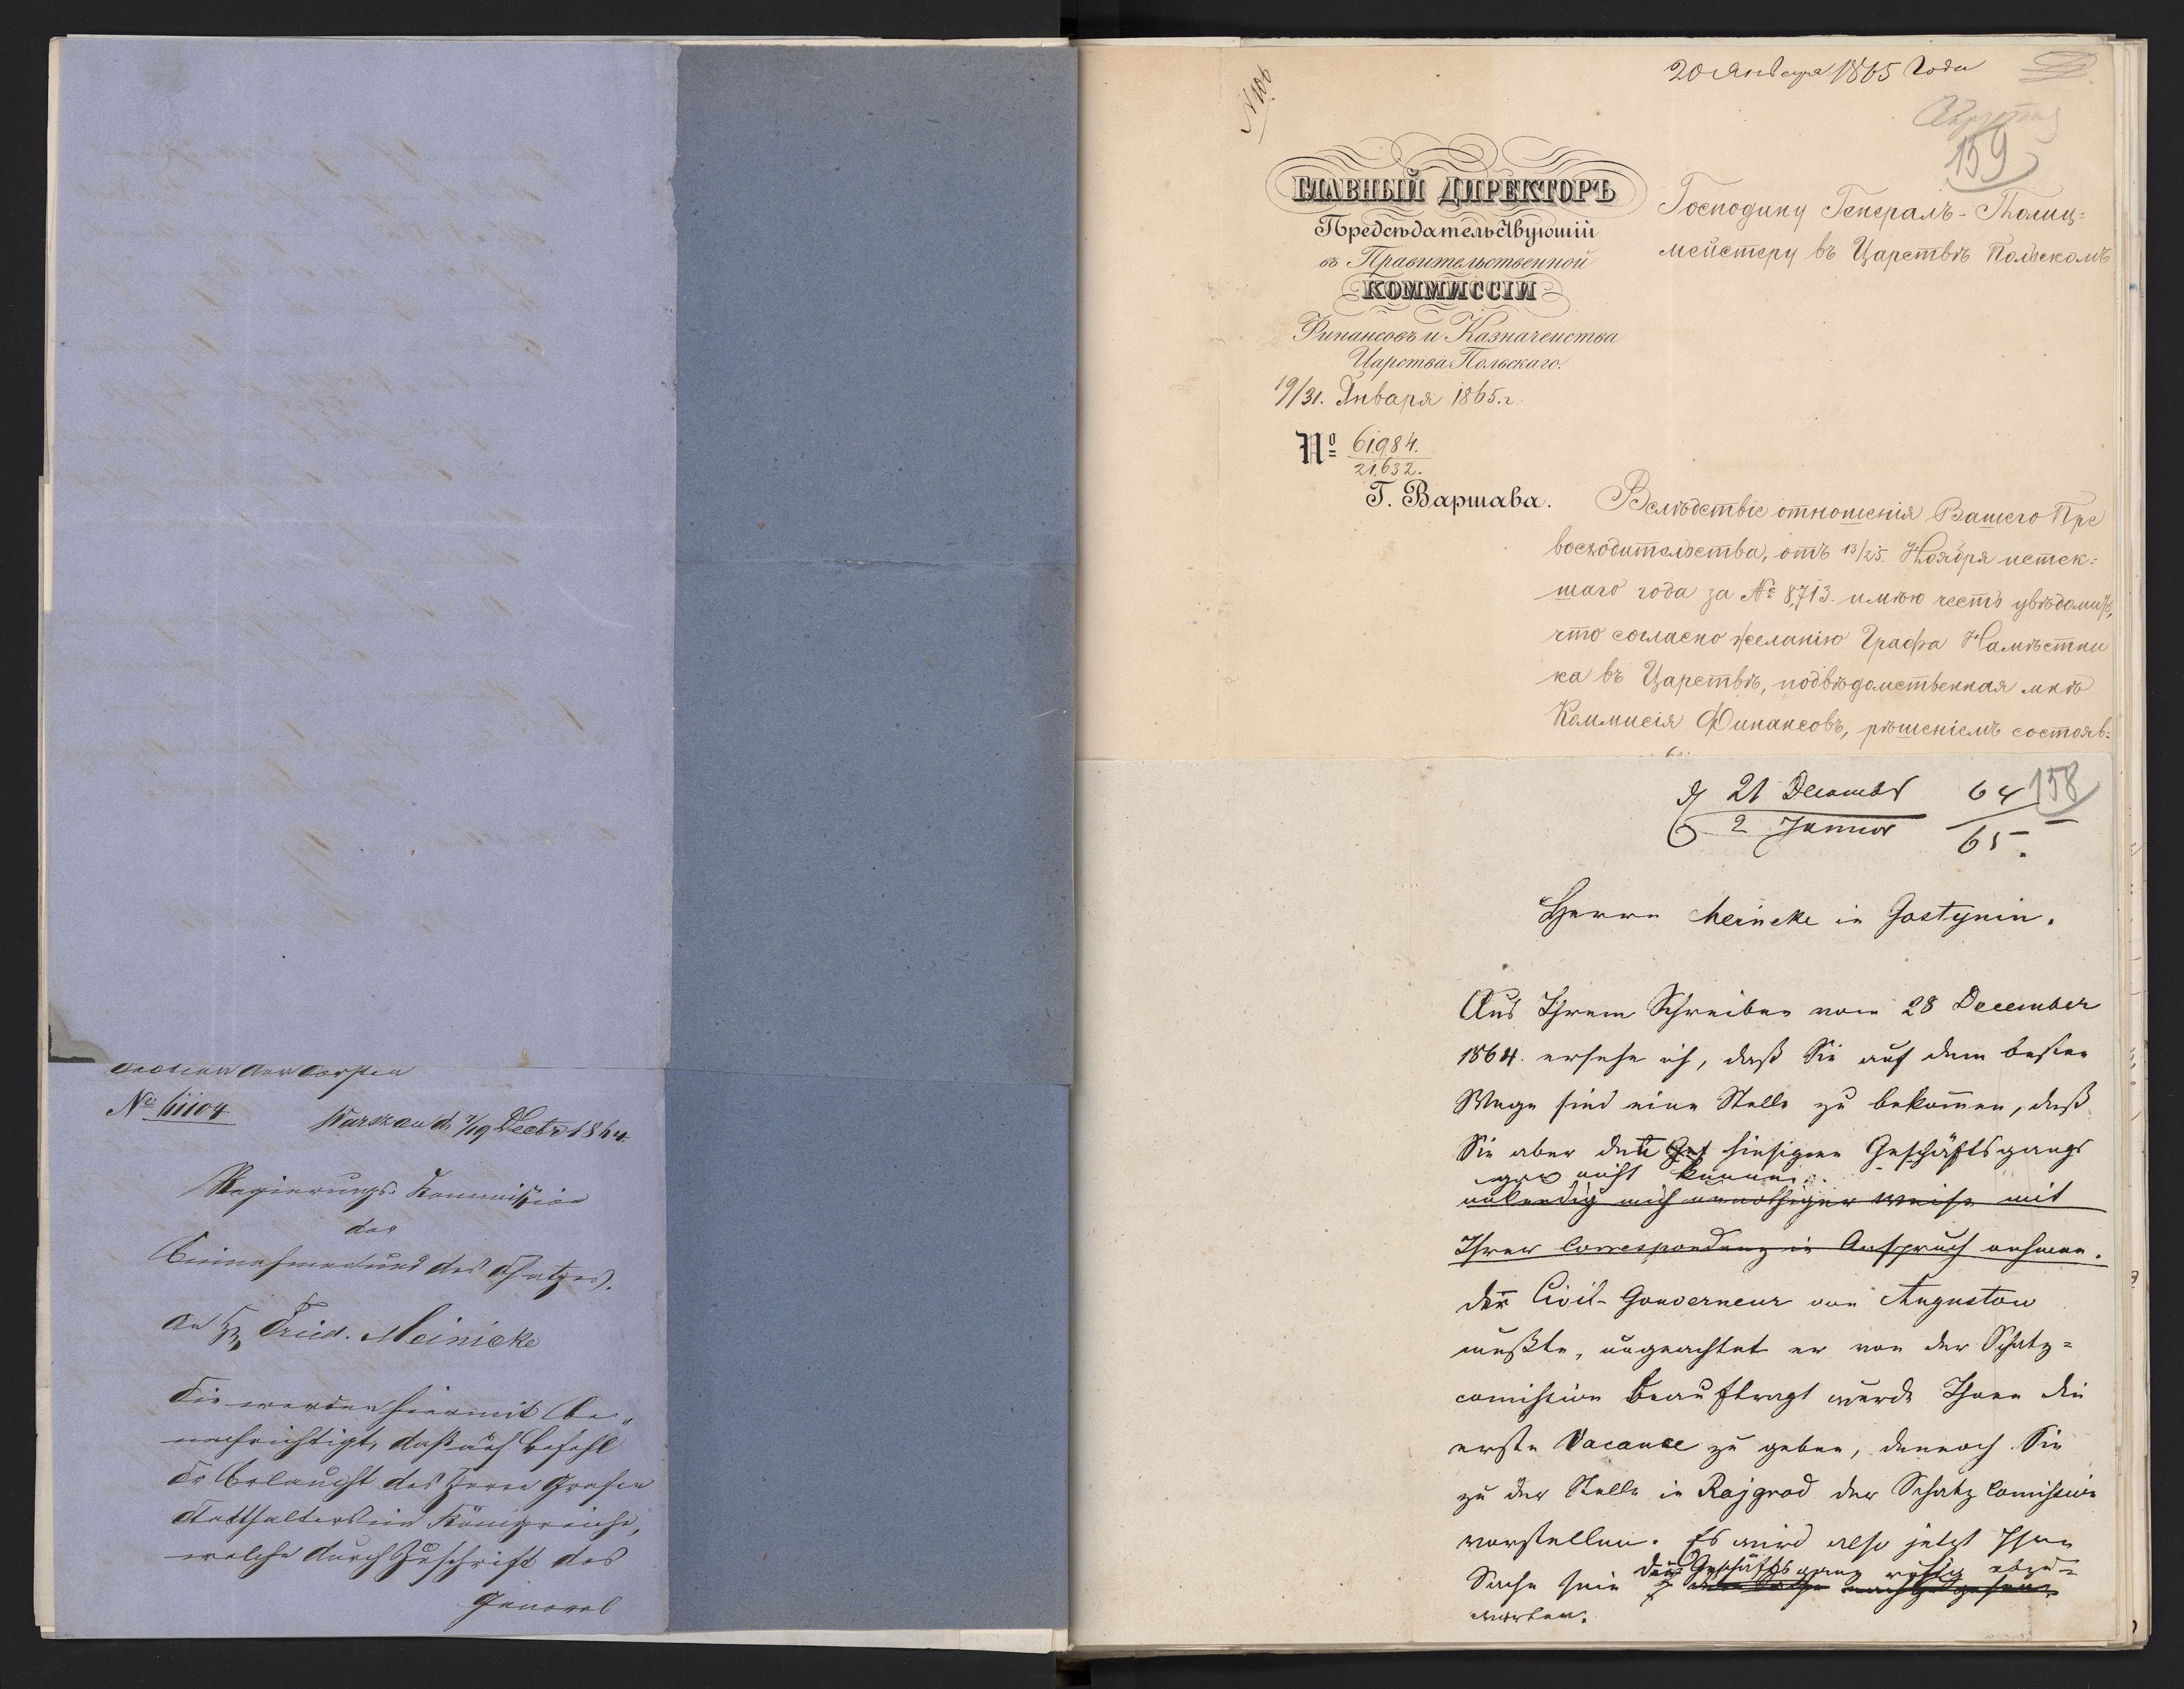 Section der Forsten
№ 61104
Warschau d. 7/19 Decbr 1864.
Regierungs-Kommission
der
Einnahmen und des Schatzes.
An H. Fried. Meinicke
Sie werden hiermit be„
nachrichtigt, daß auf Befehl
Sr Erlaucht des Herrn Grafen
Statthalters im Königreiche,
welche durch Zuschrift des
General
№ 106
20 Января 1865 Года
159
ГЛАВНЫЙ ДИРЕКТОРЪ
Предсѣдательствующій
въ Правительственной
КОММИССІИ
Финансовъ и Казначейства
Царства Польскаго.
19/31. Января 1865.г.
№ 61,984.
21,632.
Г. Варшава.
Господину Генералъ-Полиц=
мейстеру въ Царствѣ Польскомъ
Вслѣдствіе отношенія Вашего Пре
восходительства, отъ 13/25. Ноября истек=
шаго года за № 8,713. имѣю честь увѣдомить,
что согласно желанію Графа Намѣстни
ка въ Царствѣ, подвѣдомственная мнѣ
Коммисія Финансовъ, рѣшеніемъ состояв=
158
21 December 64
2 Januar 65.
Herrn Meincke in Gostynin.
Aus Ihrem Schreiben vom 28 December
1864. ersehe ich, daß Sie auf dem besten
Wege sind eine Stelle zu bekommen, daß
Sie aber den hiesigen Geschäftsgang
gar nicht kennen.
unnöthiger Weise mit
Ihrer Correspondenz in Anspruch nehmen.
Der Civil-Gouverneur von Augustow
mußte, ungeachtet er von der Schatz=
comission beauftragt wurde Ihnen die
erste Vacance zu geben, dennoch Sie
zu der Stelle in Rajgrod der Schatz Comission
vorstellen. Es wird also jetzt Ihre
Sache sein den Geschäftsgang ruhig abzu=
warten.